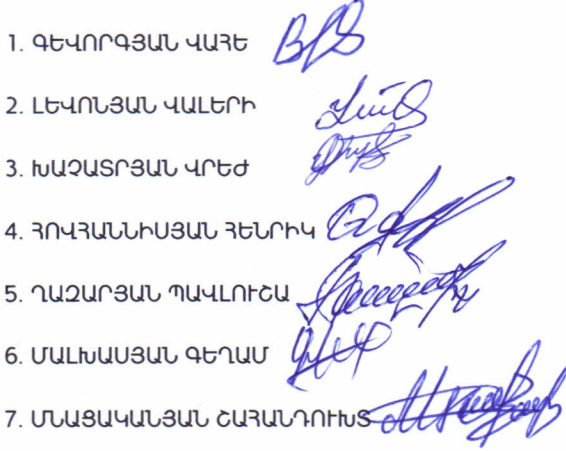 1. ԳԵՎՈՐԳՅԱՆ ՎԱՀԵ
2. ԼԵՎՈՆՅԱՆ ՎԱԼԵՐԻ
3. ԽԱՉԱՏՐՅԱՆ ՎՐԵԺ
4. ՀՈՎՀԱՆՆԻՍՅԱՆ ՀԵՆՐԻԿ
5. ՂԱԶԱՐՅԱՆ ՊԱՎԼՈՒՇԱ
6. ՄԱԼԽԱՍՅԱՆ ԳԵՂԱՄ
7. ՄՆԱՑԱԿԱՆՅԱՆ ՇԱՀԱՆԴՈՒԽՏ